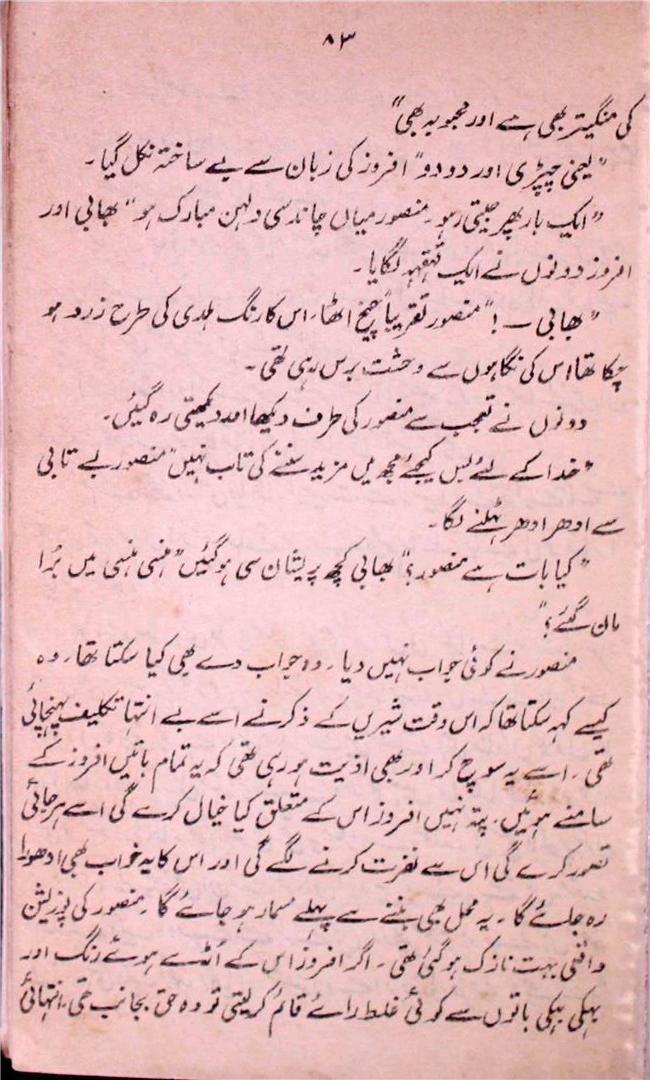 ۸۳
کی منگیتر بھی ہے اور محبوبہ بھی"
"یعنی چپڑی اور دو دو" افروز کی زبان سے بے ساختہ نکل گیا۔
"ایک بار پھر جیتی رہو۔ منصور میاں چاند سی دلہن مبارک ہو" بھابی اور
افروز دونوں نے ایک قہقہہ لگایا۔
"بھابی — !" منصور تقریباً چیخ اٹھا، اس کا رنگ ہلدی کی طرح زرد ہو
چکا تھا اس کی نگاہوں سے وحشت برس رہی تھی۔
دونوں نے تعجب سے منصور کی طرف دیکھا اور دیکھتی رہ گئیں۔
"خدا کے لئے بس کیجئے مجھ میں مزید سننے کی تاب نہیں" منصور بے تابی
سے ادھر ادھر ٹہلنے لگا۔
"کیا بات ہے منصور؟" بھابی کچھ پریشان سی ہو گئیں "ہنسی ہنسی میں بُرا
مان گئے؟"
منصور نے کوئی جواب نہیں دیا۔ وہ جواب دے بھی کیا سکتا تھا۔ وہ
کیسے کہہ سکتا تھا کہ اس وقت شیریں کے ذکر نے اسے بے انتہا تکلیف پہنچائی
تھی۔ اسے یہ سوچ کر اور بھی اذیت ہو رہی تھی کہ یہ تمام باتیں افروز کے
سامنے ہوئیں۔ پتہ نہیں افروز اس کے متعلق کیا خیال کرے گی اسے ہرجائی
تصور کرے گی اس سے نفرت کرنے لگے گی اور اس کا یہ خواب بھی ادھورا
رہ جائے گا۔ یہ محل بھی بننے سے پہلے مسمار ہو جائے گا۔ منصور کی پوزیشن
واقعی بہت نازک ہو گئی تھی۔ اگر افروز اس کے اُڑے ہوئے رنگ اور
بہکی بہکی باتوں سے کوئی غلط رائے قائم کر لیتی تو وہ حق بجانب تھی۔ انتہائی